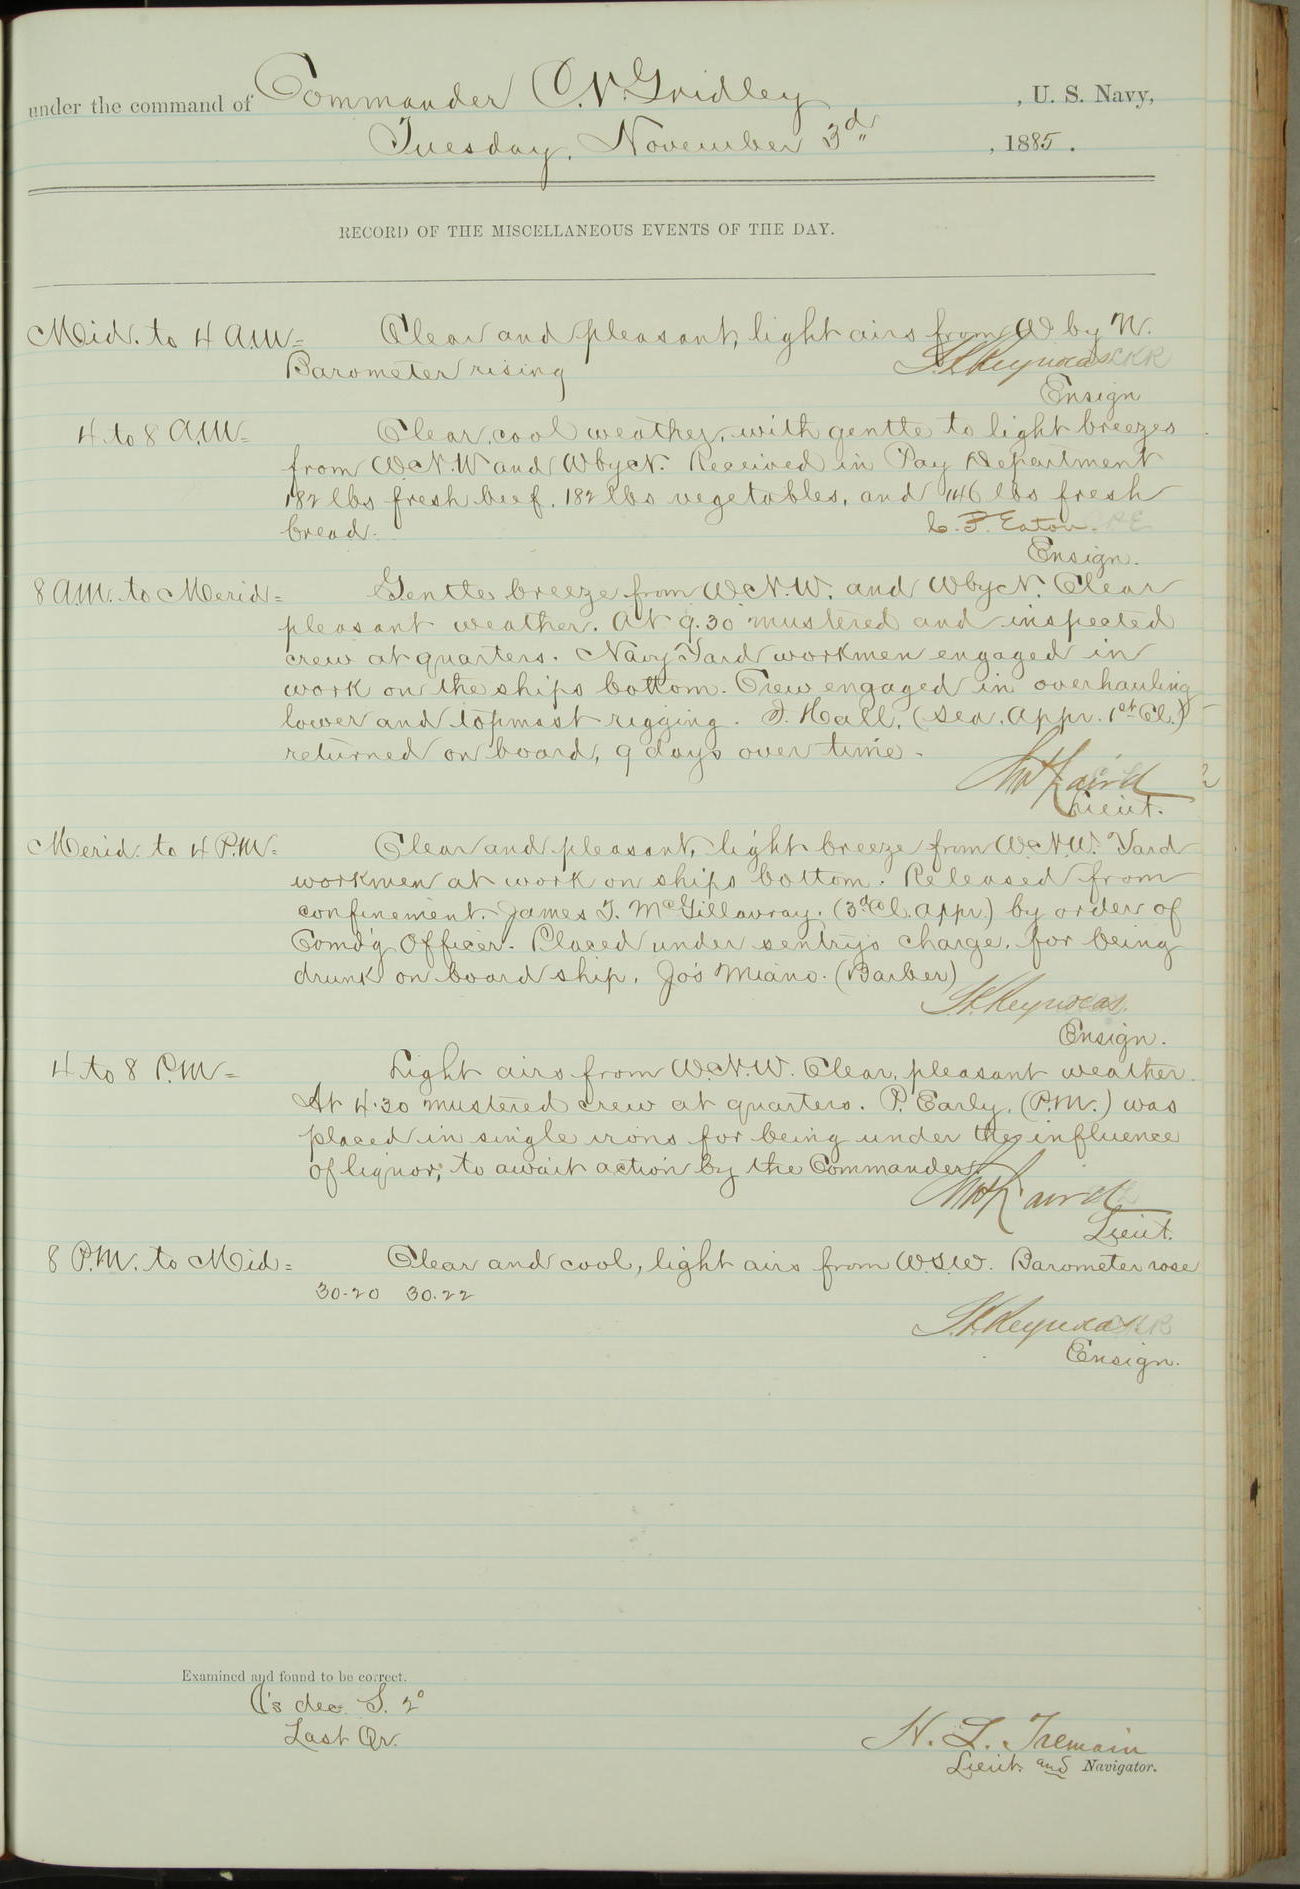 under the command of Commander C. V. Gridley, U. S. Navy,
Tuesday, November 3d, 1885.
RECORD OF THE MISCELLANEOUS EVENTS OF THE DAY.
Mid. to 4 A.M= Clear and pleasant, light airs from W by N.
Barometer rising
Ensign
4 to 8 A.M= Clear, cool weather, with gentle to light breezes
from W.N.W and W by N. Received in Pay Department
182 lbs fresh beef, 182 lbs vegetables, and 146 lbs fresh
bread. C. F. Eaton.
Ensign.
8 A.M. to Merid= Gentle breeze from W.N.W. and W by N. Clear
pleasant weather. At 9.30 mustered and inspected
crew at quarters. Navy Yard workmen engaged in
work on the ships bottom. Crew engaged in overhauling
lower and topmast rigging. J. Hall, (Sea. Appr. 1st Cl.)
returned on board, 9 days over time.
Lieut.
Merid. to 4 P.M= Clear and pleasant, light breeze from W.N.W. Yard
workmen at work on ships bottom. Released from
confinement. James T. McGillavray. (3d Cl. Appr.) by order of
Comd'g Officer. Placed under sentry's charge, for being
drunk on board ship, Jos Miano. (Barber)
S. K. Reynolds.
Ensign.
4 to 8 P.M= Light airs from W.N.W. Clear, pleasant weather.
At 4.30 mustered crew at quarters. P. Early, (P.M.) was
placed in single irons for being under the influence
of liquor, to await action by the Commander.
Lieut.
8 P.M. to Mid= Clear and cool, light airs from W.S.W. Barometer rose
30.20 30.22
Ensign.
Examined and found to be correct.
☾'s dec. S. 2°
Last Qr.
H. L. Tremain
Lieut. and Navigator.